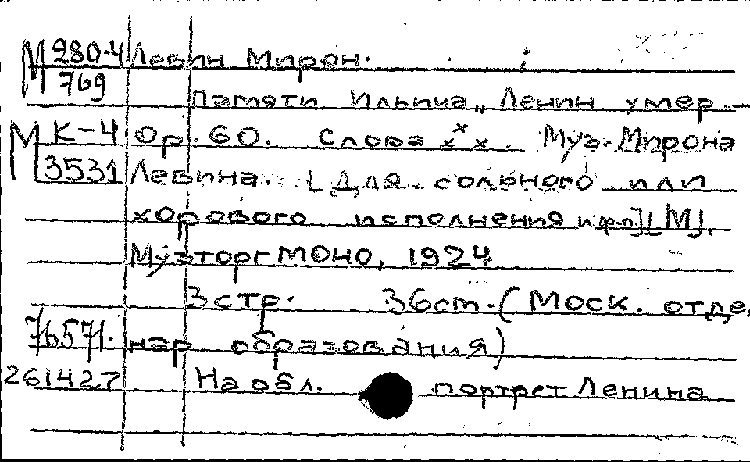 М 280-4 Левин Мирон.
769
Памяти Ильича „Ленин умер —
М К-4 Ор. 60. Слова х х х. Муз. Мирона
3531 Левина. [Для сольного или
хорового исполнения и ф-п] [М],
Музторг МОНО, 1924
3 стр. 36 см. (Моск. отде.
76571. нар образования)
261427 На обл. портрет Ленина